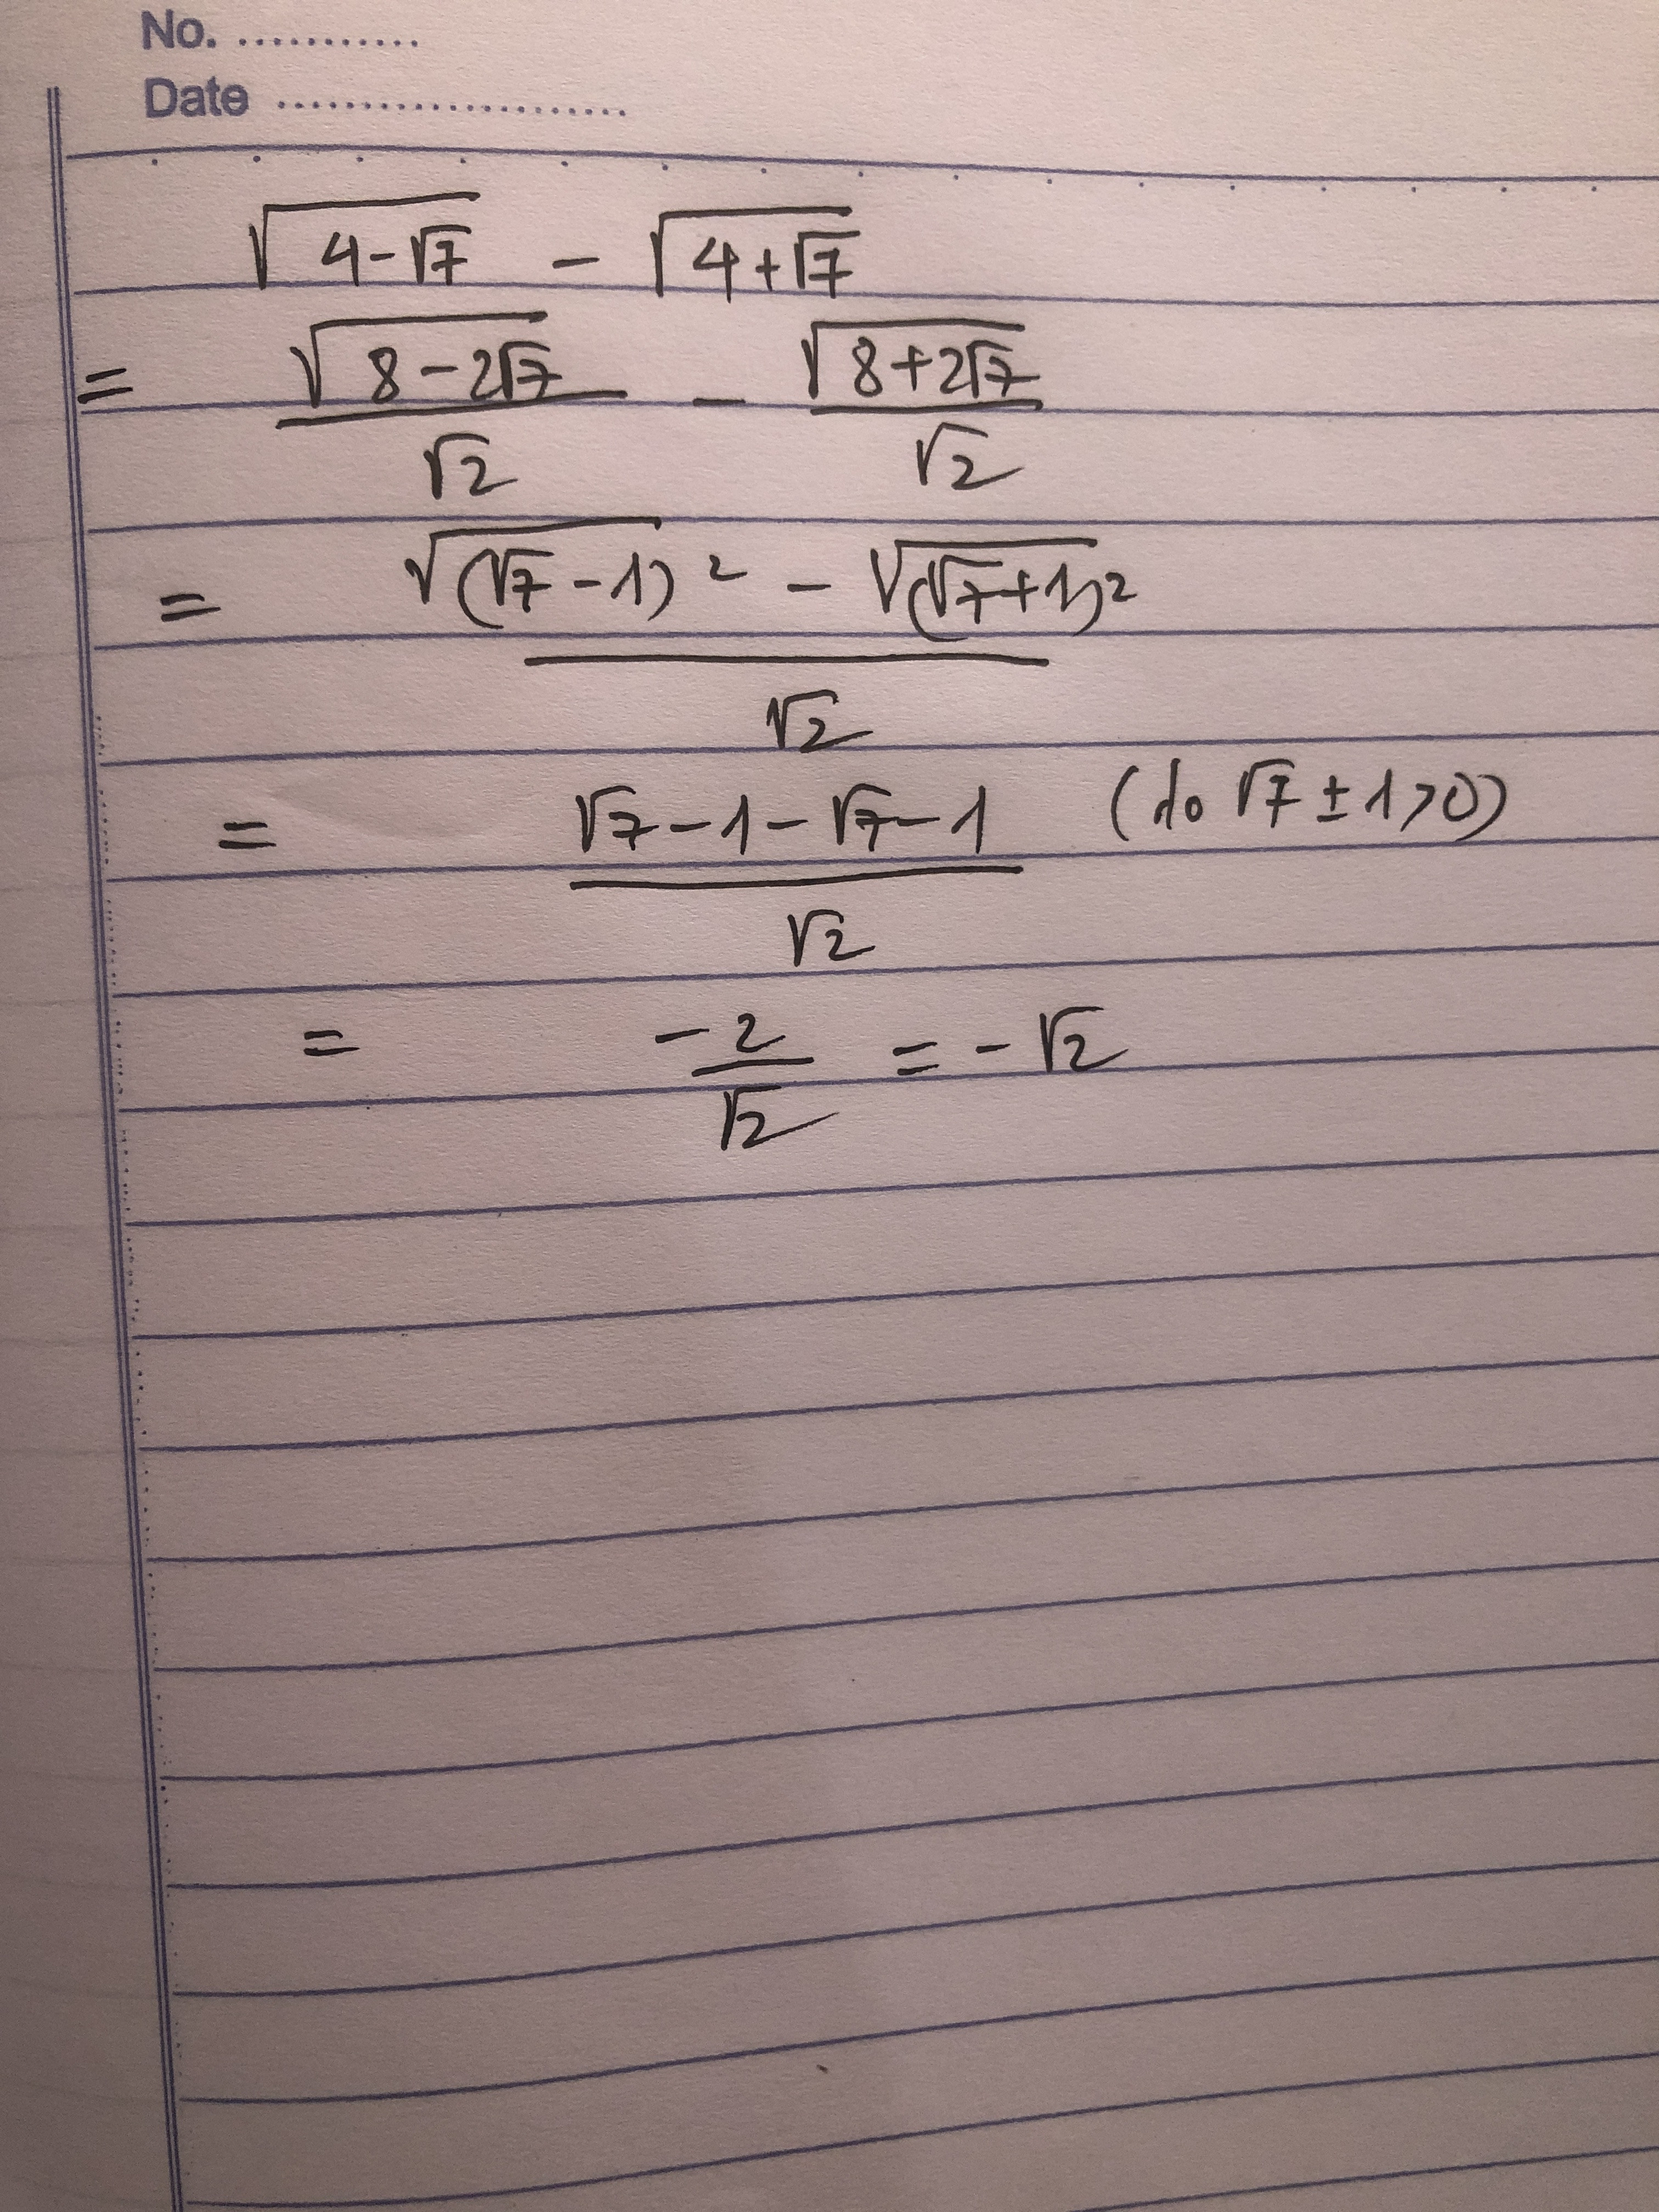 No. ...........
Date .....................
√(4-√7) - √(4+√7)
= √(8-2√7)/√2 - √(8+2√7)/√2
= (√(√7-1)² - √(√7+1)²)/√2
= (√7-1-√7-1)/√2 (do √7 ± 1 > 0)
= -2/√2 = -√2